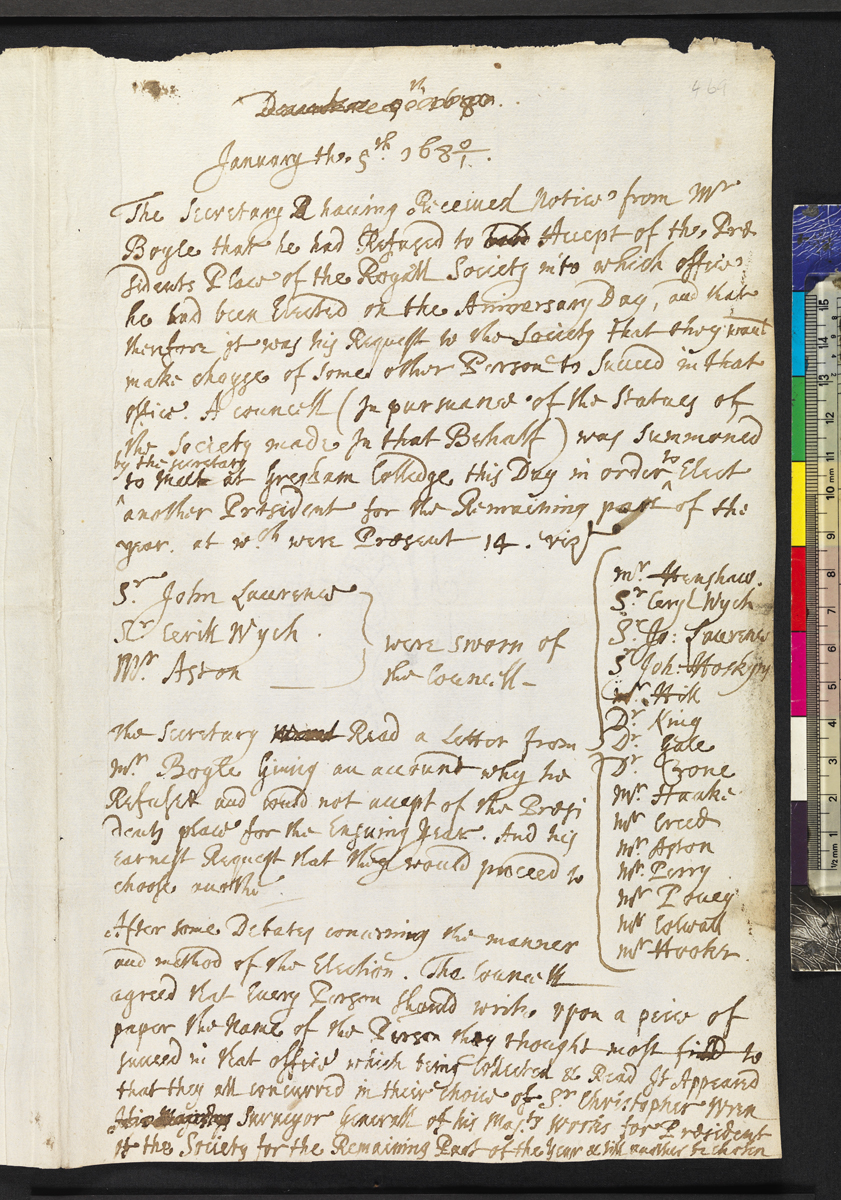 469
January the 5th 168 0/1.
The Secretary having Received Notice from Mr
Boyle that he had Refused to Accept of the Præ
sidents Place of the Royall Society into which office
he had been Elected on the Aniversary Day, and that
therefore it was his Request to the Society that they would
make choyse of some other Person to Succeed in that
office. A councell (In pursuance of the Statues of
the Society made In that Behalf) was Summoned
by the secretary
to meet at Gresham Colledge this Day in order to Elect
another Præsident for the Remaining part of the
year. at wch were Præsent 14. viz
Sr John Lawrence
Sr Cerill Wych
Mr Aston
were sworn of
the Councell
Mr Henshaw.
Sr Ceryl Wych
Sr Jo: Lawrence
Sr Joh: Hoskyns
Mr Hill
Dr King
Dr Gale
Dr Crone
Mr Haake
Mr Creed
Mr Aston
Mr Perry
Mr Povey
Mr Colwall
Mr Hooke.
The Secretary Read a Letter from
Mr Boyle Giving an account why he
Refused and could not accept of the Præsi
dents place for the Ensuing Year. And his
earnest Request that they would proceed to
choose another
After some Debates concerning the manner
and method of the Election. The Councell
agreed that Every Person should write upon a peice of
paper the Name of the Person they thought most fitt to
succeed in that office which being Collected & Read It Appeared
that they all concurred in their choice of Sr Christopher Wren
Surveyor Generall of his Majtys Works for Præsident
of the Society for the Remaining Part of the Year & till another be chosen